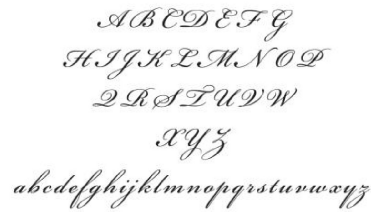 A B C D E F G
H I J K L M N O P
Q R S T U V W
X Y Z
abcdefghijklmnopqrstuvwxyz